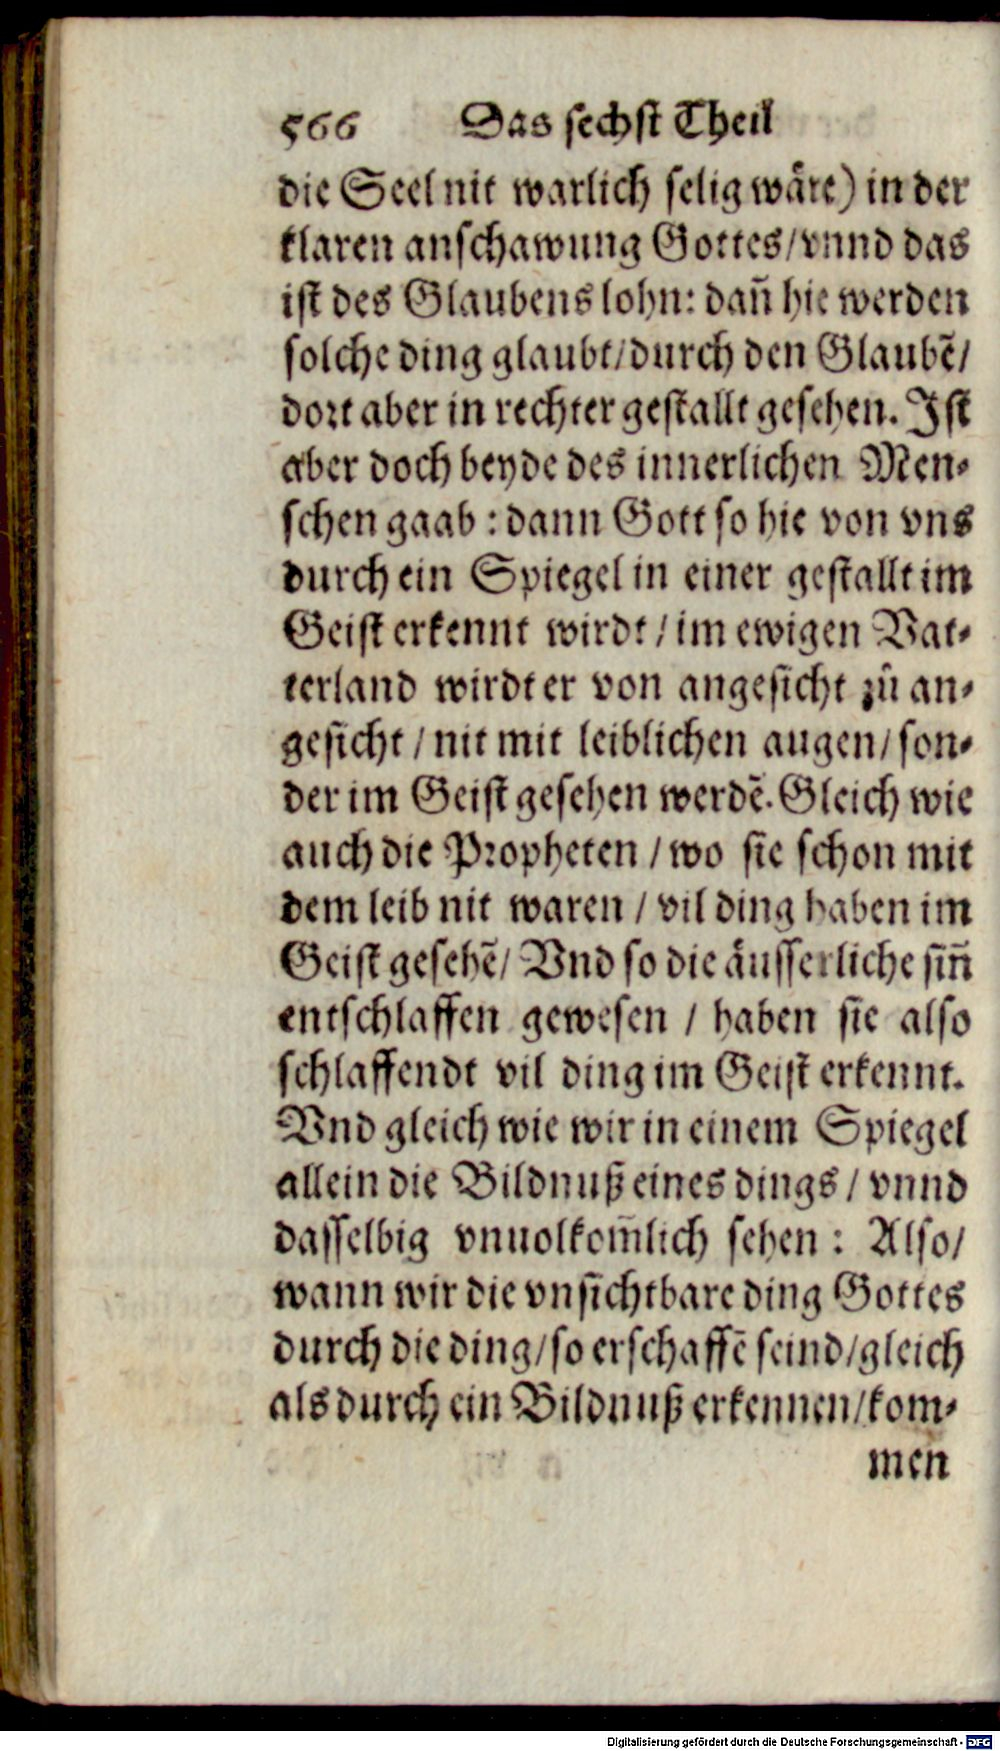 566 Das sechst Theil
die Seel nit warlich selig wäre) in der
klaren anschawung Gottes/vnnd das
ist des Glaubens lohn: dañ hie werden
solche ding glaubt/durch den Glaubẽ/
dort aber in rechter gestallt gesehen. Ist
aber doch beyde des innerlichen Men-
schen gaab : dann Gott so hie von vns
durch ein Spiegel in einer gestallt im
Geist erkennt wirdt / im ewigen Vat-
terland wirdt er von angesicht zů an-
gesicht / nit mit leiblichen augen/ son-
der im Geist gesehen werdẽ. Gleich wie
auch die Propheten / wo sie schon mit
dem leib nit waren / vil ding haben im
Geist gesehẽ/ Vnd so die äusserliche siñ
entschlaffen gewesen / haben sie also
schlaffendt vil ding im Geist erkennt.
Vnd gleich wie wir in einem Spiegel
allein die Bildnuß eines dings / vnnd
dasselbig vnuolkom̃lich sehen : Also/
wann wir die vnsichtbare ding Gottes
durch die ding/so erschaffẽ seind/gleich
als durch ein Bildnuß erkennen/kom-
men
Digitalisierung gefördert durch die Deutsche Forschungsgemeinschaft - DFG